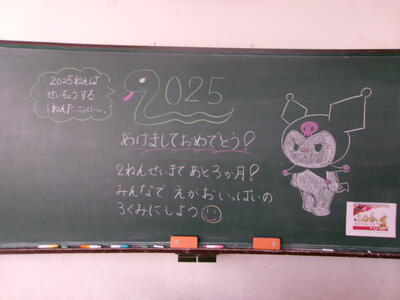 2025ねんは
せいちょうする
1ねんだニョロ〜。
2025
あけましておめでとう!
2ねんせいまであと3か月!
みんなで えがおいっぱいの
3くみにしよう